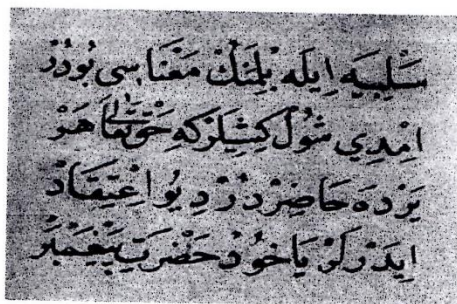 سَلْبِيَه اِيلَه بِلِنَكْ مَعْنَاسِى بُودُرْ
اِمْدِي شُولْ كِشِيلَرْكِه حَقْ تَعَالَى هَرْ
يَرْدَه حَاضِرْدُرْ دِيُو اِعْتِقَادْ
اِيدَرْلَرْ يَاخُودْ حَضْرَتِ پَيْغَمْبَرْ